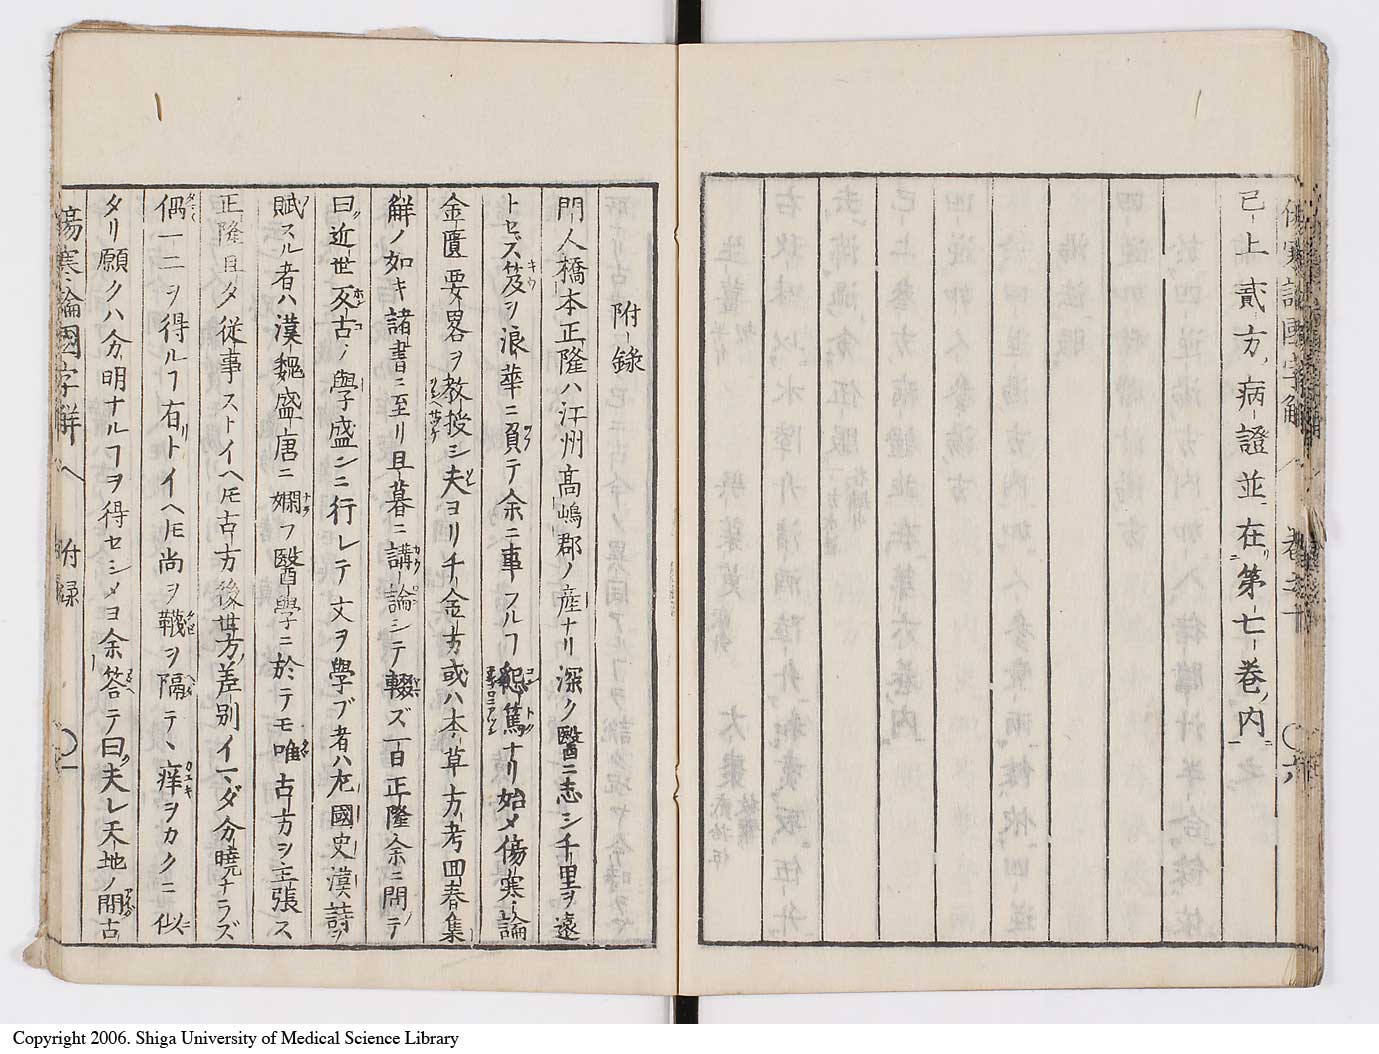 已上貳方病證並在第七卷内
附錄
門人橋本正隆ハ江州髙嶋郡ノ産ナリ深ク醫ニ志シ千里ヲ遠
トセズ笈ヲ浪華ニ負テ余ニ事フルヿ懇篤ナリ始メ傷寒論
金匱要畧ヲ教授シ夫ヨリ千金方或ハ本草方考回春集
觧ノ如キ諸書ニ至リ旦暮ニ講論シテ輟ズ一日正隆余ニ問テ
曰近世復古ノ學盛ンニ行レテ文ヲ學ブ者ハ左國史漢詩ヲ
賦スル者ハ漢魏盛唐ニ嫻フ醫學ニ於テモ唯古方ヲ主張ス
正隆旦夕従事ストイヘ𪜈古方後世方ノ差別イマダ分曉ナラズ
偶一二ヲ得ルヿ有トイヘ𪜈尚ヲ韈ヲ隔テ、痒ヲカクニ似
タリ願クハ分明ナルヿヲ得セシメヨ余答テ曰夫レ天地ノ間古
傷寒論國字觧 附録 〇一
傷寒論國字解 〇六
Copyright 2006. Shiga University of Medical Science Library